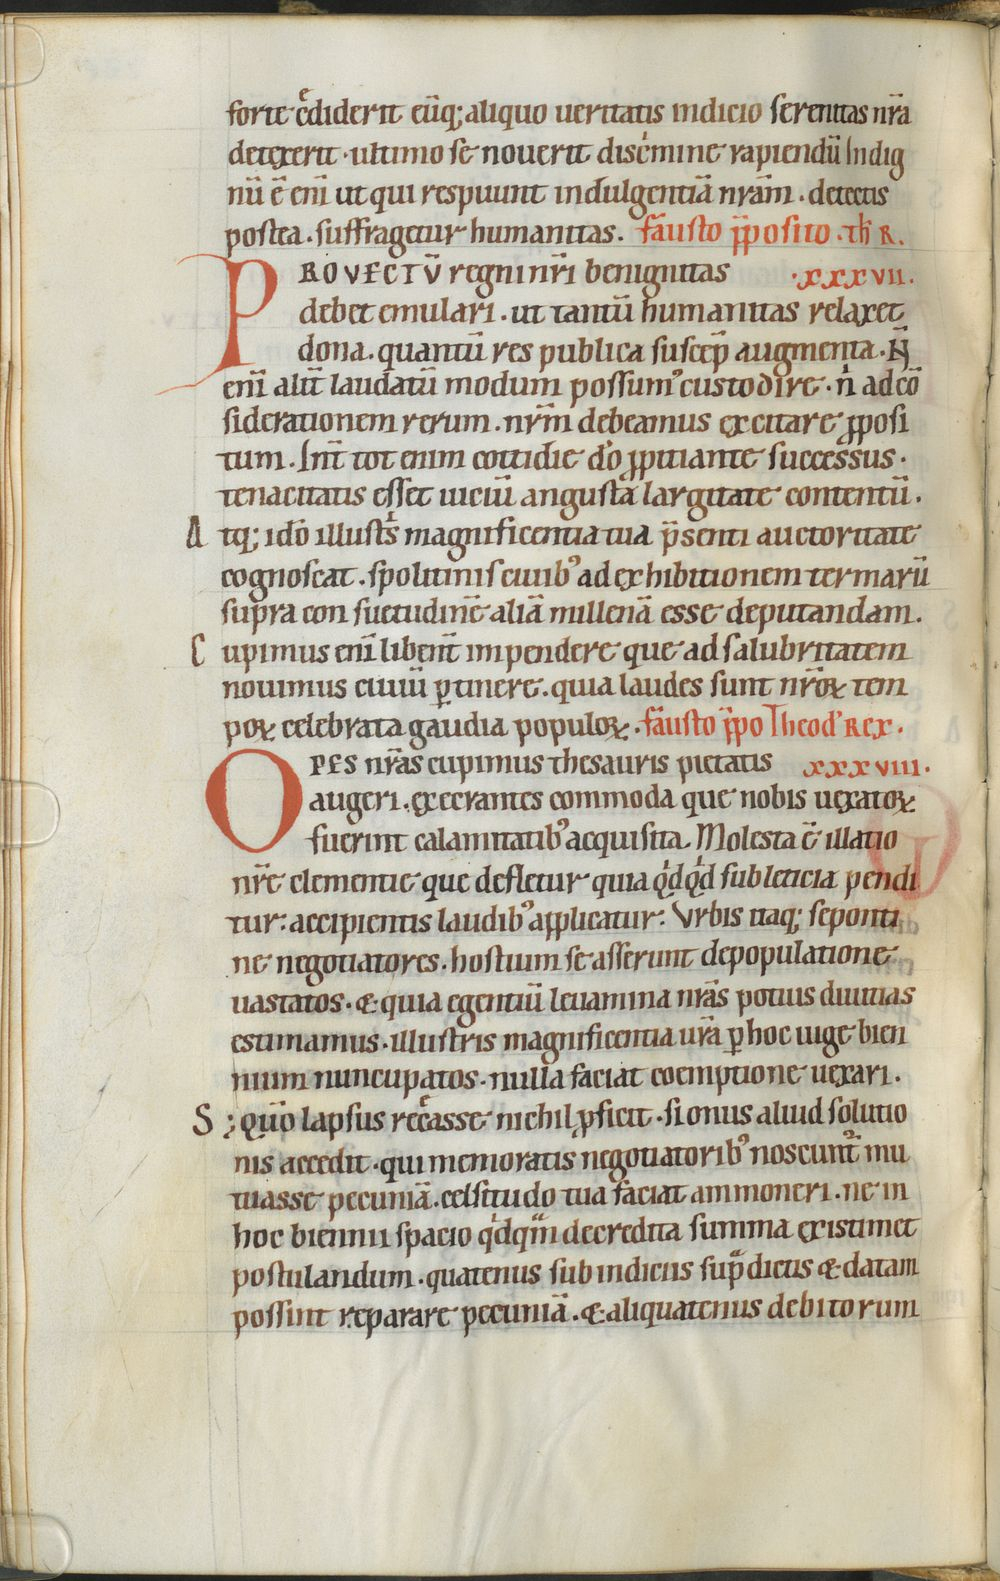 forte cͤdiderit eūq; aliquo ueritatis indicio serenitas nr̄a
detexerit · ultimo se nouerit disc̓mine rapiendū Indig
nū ē eni̅ ut qui respuunt indulgentiā nrām . detectis
postea . suffragetur humanitas . fausto p̄posito . th̄ R .
PROVECTŪ regni nr̄i benignitas ·xxxvii·
debet emulari . ut tantū humanitas relaxet
dona . quantū res publica suscep̄ augmenta . N̄
eni̅ alit̄ laudatū modum possum᾽ custodire . n̓ ad cō
siderationem rerum . nr̄m debeamus excitare ꝓposi
tum . Int̄ tot enim cottidie dō ꝓpitiante successus .
tenacitatis esset uiciū angusta largitate contentū .
A tq; idō illustͥs magnificentia tua p̄senti auctoritate
cognoscat . spolitinis ciuib᾽ ad exhibitionem termarū
supra con suetudinē aliā millenā esse deputandam .
C upimus eni̅ libent̄ impendere que ad salubritatem
nouimus ciuiū ꝑtinere . quia laudes sunt nr̄oꝝ tem
poꝝ celebrata gaudia populoꝝ . fausto p̄po Theod᾽ REX .
OPES nrās cupimus thesauris pietatis xxxviii .
augeri . execrantes commoda que nobis uexatoꝝ
fuerint calamitatib᾽ acquisita . Molesta ē illatio
nr̄e clementie que defletur quia qͥdqͥd sub leticia pendi
tur : accipientis laudib᾽ applicatur : Vrbis itaq; seponti
ne negotiatores . hostium se asserunt depopulatione
uastatos . & quia egentiū leuamina nrās potius diuitias
estimamus . illustris magnificentia ur̄a ꝑ hoc iuge bien
nium nuncupatos . nulla faciat coemptione uexari .
S ; quō lapsus recͤasse nichil ꝓficit . si onus aliud solutio
nis accedit . qui memoratis negotiatorib᾽ noscunt᾽ mu
tuasse pecuniā . celsitudo tua faciat ammoneri . ne in
hoc biennii spacio qͥdqᵃm de credita summa existimet
postulandum . quatenus sub indiciis sup̄dictis & datam
possint reparare pecuniā . & aliquatenus debitorum